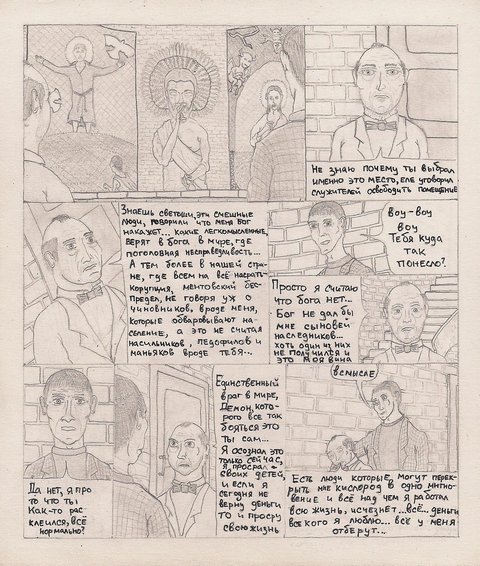 Не знаю почему ты выбрал
именно это место, еле уговорил
служителей освободить помещение
Знаешь светоши, эти смешные
люди, говорили что меня бог
накажет... какие легкомысленные,
верят в бога в мире, где
поголовная несправедливость...
А тем более в нашей стра-
не, где всем на всё насрать-
корупция, ментовский бес-
предел, не говоря уж о
чиновников, вроде меня,
которые обваровывают на-
селение, а это не считая
насильников, педофилов и
маньяков вроде тебя...
Воу-воу
воу
Тебя куда
так
понесло?
Просто я считаю
что бога нет...
Бог не дал бы
мне сыновей
наследников...
хоть один из них
не получился и
это моя вина
всмысле?
Да нет, я про
то что ты
как-то рас
клеился, всё
нормально?
Единственный
враг в мире,
Демон, кото-
рого все так
бояться это
ты сам...
Я осознал это
только сейчас,
я просрал
своих детей,
и если я
сегодня не
верну деньги
то и просру
свою жизнь
Есть люди которые могут перек-
рыть мне кислород в одно мгно-
вение и всё над чем я работал
всю жизнь, исчезнет...всё... деньги
все кого я люблю... всё у меня
отберут...